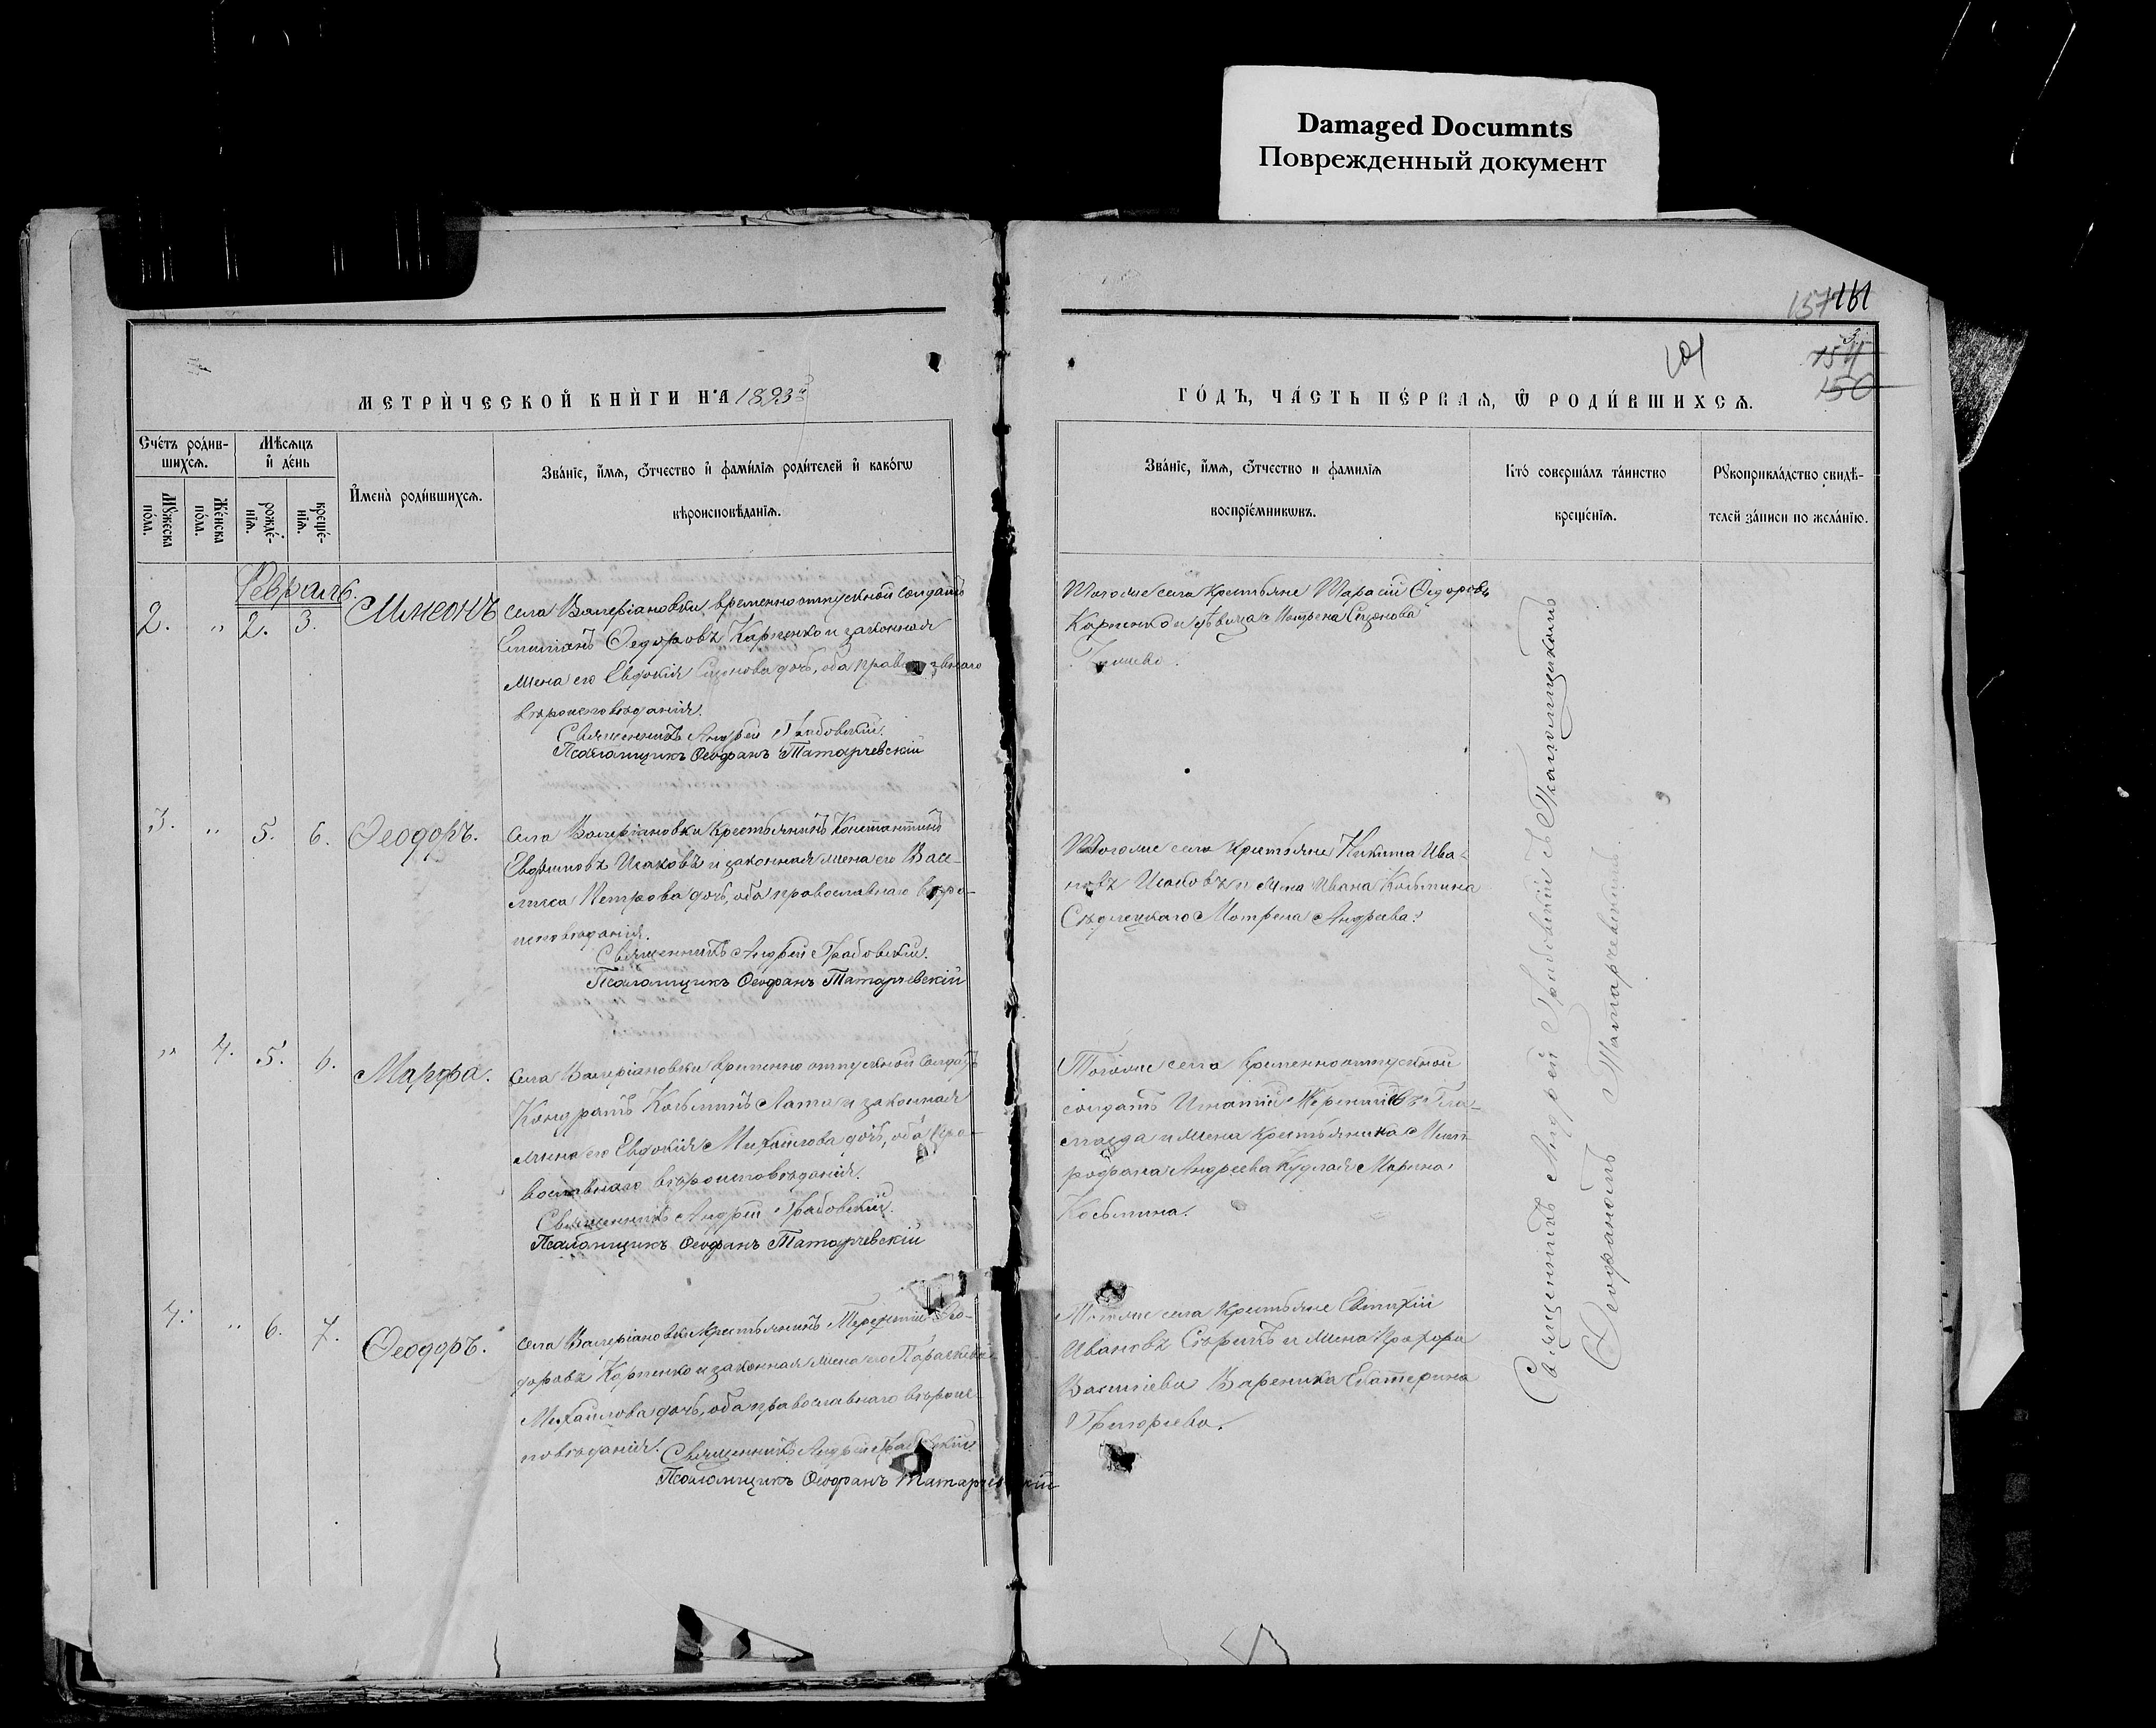 Damaged Documnts
Поврежденный документ
157 161
3
154
150
101
МЕТРИЧЕСКОЙ КНИГИ НА 1893й
ГОДЪ, ЧАСТЬ ПЕРВАЯ, Ѡ РОДИВШИХСЯ.
Счетъ родив-
шихся.
Мужеска
пола.
Женска
пола.
Мѣсяцъ
и день
рожде-
нія.
креще-
нія.
Имена родившихся.
Званіе, имя, отчество и фамилія родителей и какогѡ
вѣроисповѣданія.
Званіе, имя, отчество и фамилія
воспріемникѡвъ.
Кто совершалъ таинство
крещенія.
Рукоприкладство свидѣ-
телей записи по желанію.
Февраль.
2. " 2. 3. Симеонъ
Села Валеріановки временно отпускной солдатъ
Федоровъ Карпенко и законная
жена его Евдокія дочь, оба
вѣроисповѣданія.
Священникъ Андрей Грабовскій.
Псаломщикъ Ѳеофанъ Татарчевскій
Тогоже села крестьяне Тарасій Ѳедоровъ
Карпенко и дѣвица Матрена
3. " 5. 6. Ѳеодоръ.
Села Валеріановки крестьянинъ Константинъ
Евдокимовъ Исаковъ и законная жена его Васи-
лиса Петрова дочь, оба православнаго вѣро-
исповѣданія.
Священникъ Андрей Грабовскій.
Псаломщикъ Ѳеофанъ Татарчевскій
Тогоже села крестьяне Никита Ива-
новъ Исаковъ и жена Ивана Косьмина
Матрена Андреева.
" 4. 5. 6. Марфа.
Села Валеріановки временно отпускной солдатъ
Кондратъ Косьминъ Лата и законная
жена его Евдокія Михайлова дочь, оба пра-
вославнаго вѣроисповѣданія.
Священникъ Андрей Грабовскій.
Псаломщикъ Ѳеофанъ Татарчевскій
Тогоже села временно отпускной
солдатъ Игнатій
и жена крестьянина Мит-
рофана Андреева Кудлая Марина
Косьмина.
4. " 6. 7. Ѳеодоръ.
Села Валеріановки крестьянинъ Терентій Ѳео-
доровъ Карпенко и законная жена его Параскева
Михайлова дочь, оба православнаго вѣроис-
повѣданія. Священникъ Андрей Грабовскій.
Псаломщикъ Ѳеофанъ Татарчевскій
Тогоже села крестьяне Евтихій
Ивановъ и жена Прохора
Василіева Вареника Екатерина
Григорьева.
Священникъ Андрей Грабовскій съ Псаломщикомъ
Ѳеофаномъ Татарчевскимъ.